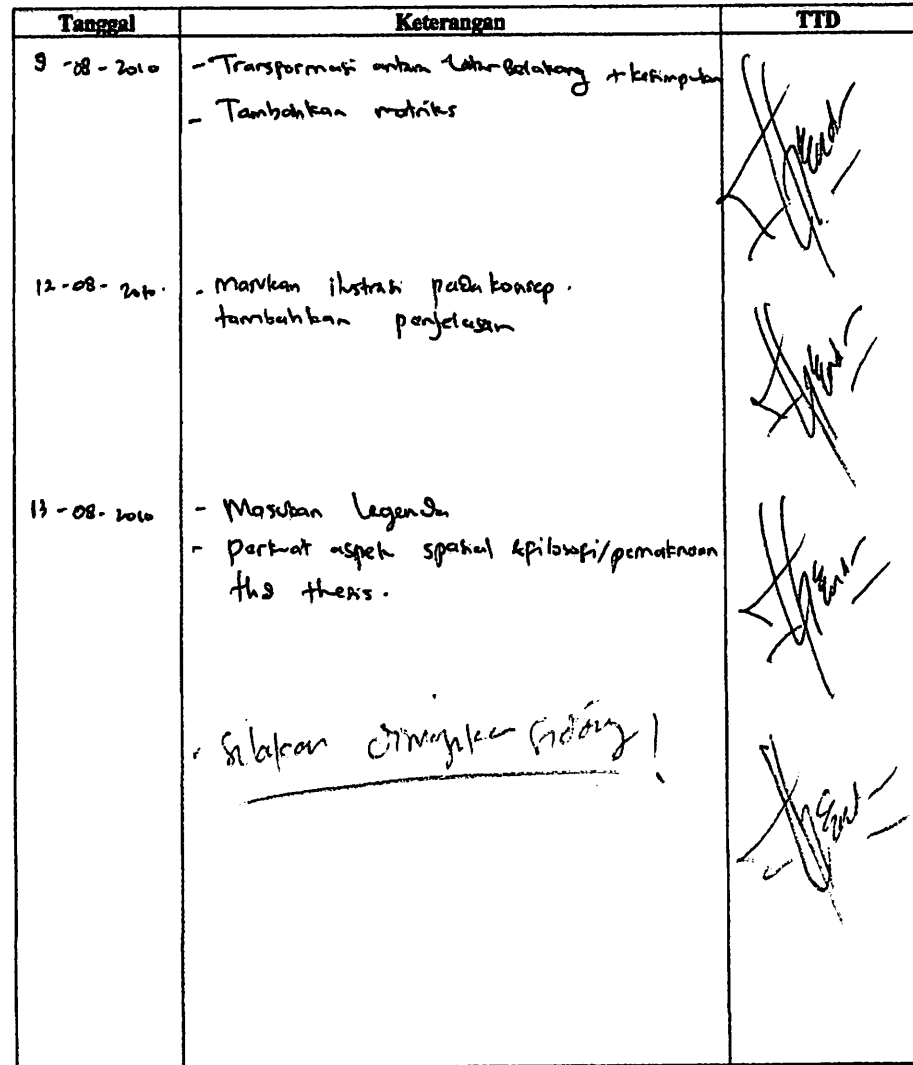 Tanggal Keterangan TTD
9 -08 - 2010 - Transformasi antara Latar Belakang + kesimpulan
- Tambahkan matriks
12-08- 2010. - Masukan ilustrasi pada konsep.
tambahkan penjelasan
13 -08- 2010 - Masukan Legenda
- perkuat aspek spasial &filosofi/pemaknaan
thd thesis.
- Silakan dimajukan Sidang!